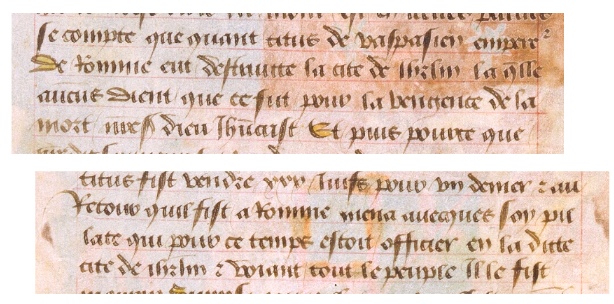 se compte que quant titus de vaspasien empere
de Romme eut destruitte la cite de ihrlm la qlle
aucus dient que ce fut pour la vengence de la
mort nres dieu ihucrist Et puis pource que
titus fist vendre xxx Juifs pour vn denier et au
Retour quil fist a Romme mena auecques soy pil
late qui pour ce temps estoit officier en la ditte
cite de ihrlm et voiant tout le peuple Il le fist